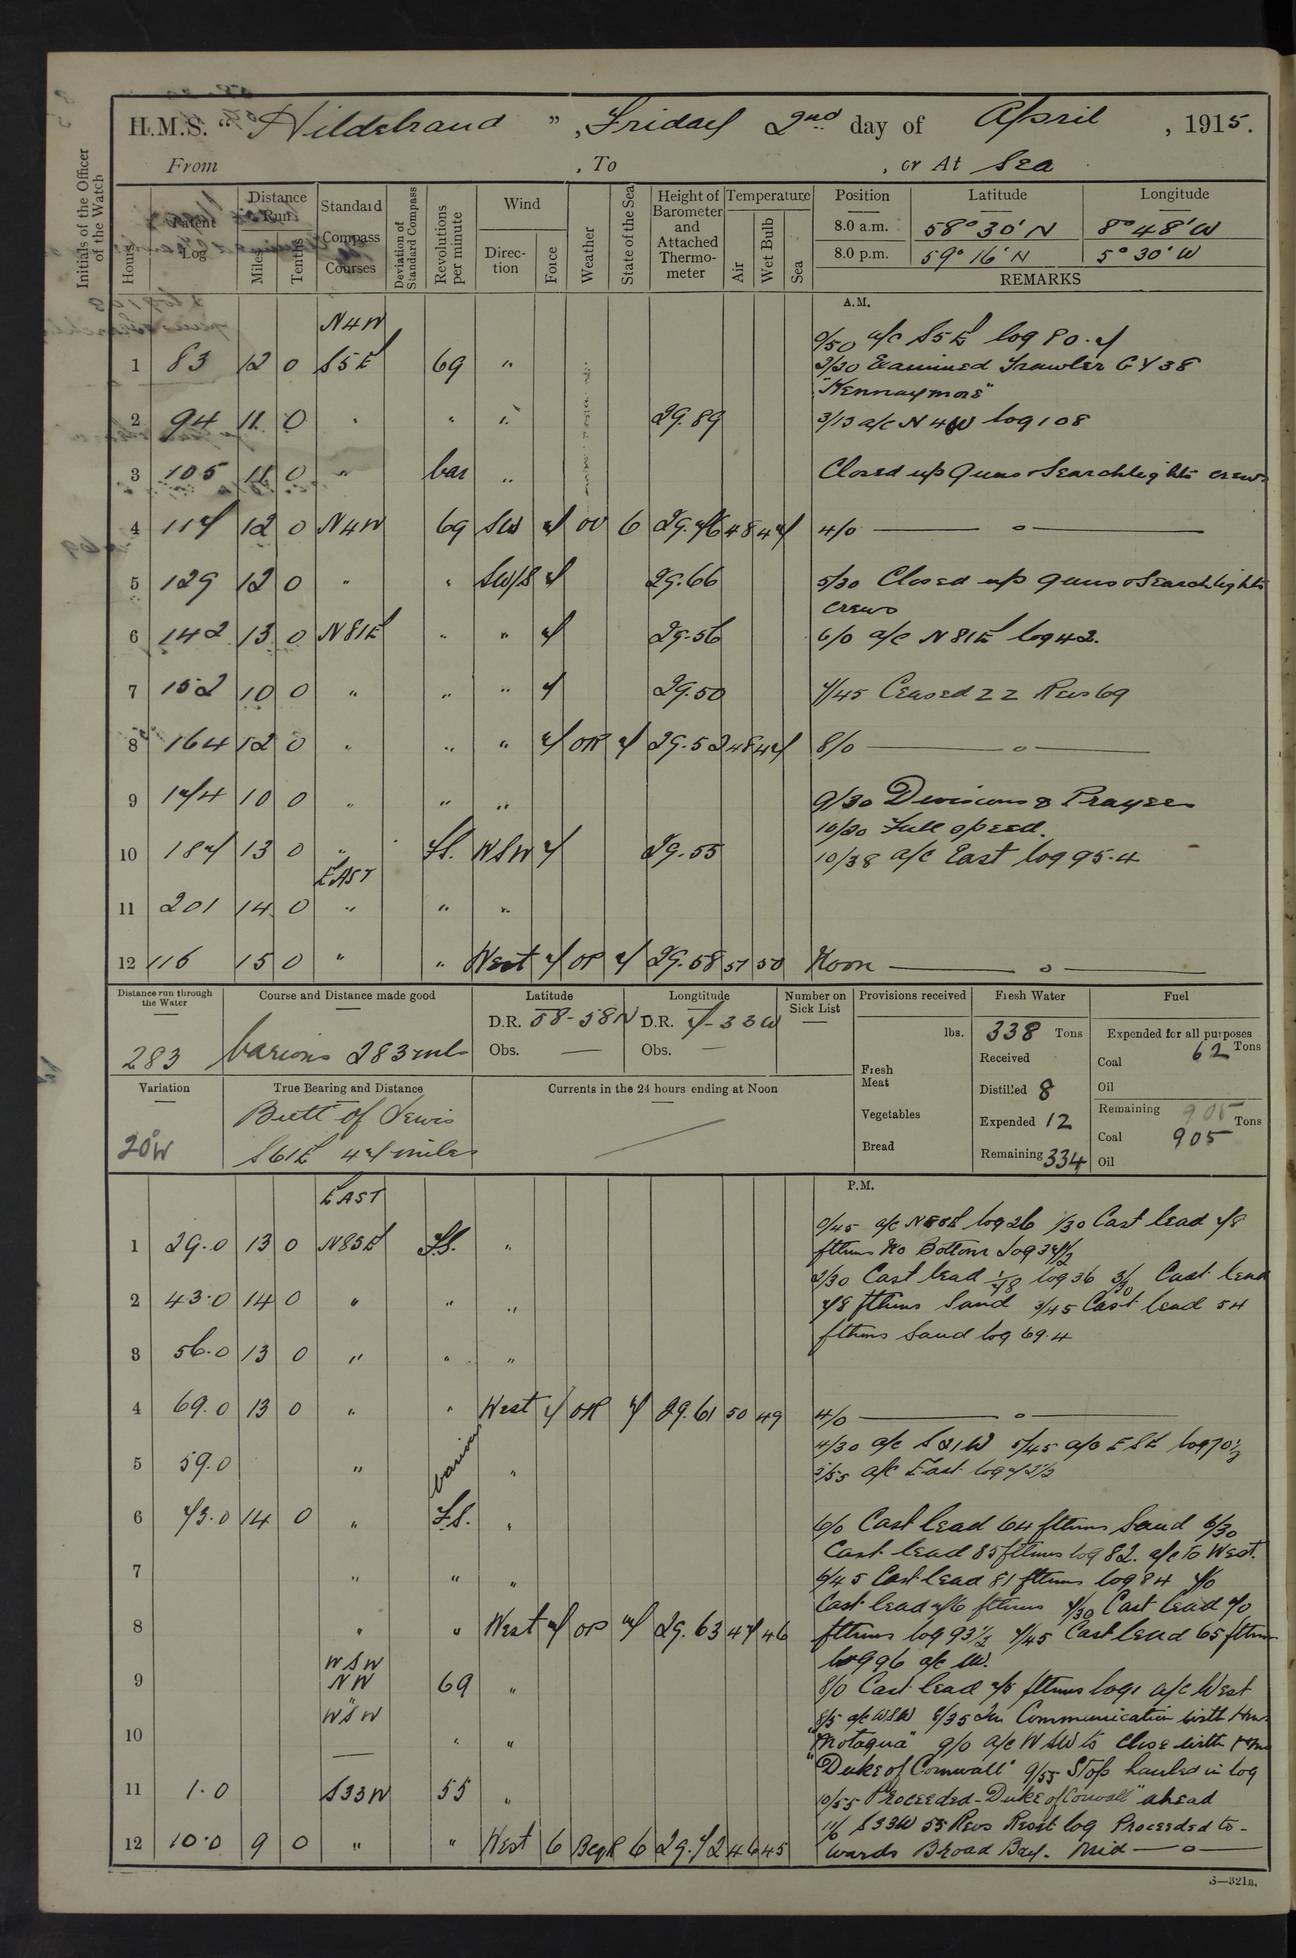 H.M.S. "Hildebrand", Friday 2nd day of April, 1915.
From , To , or At Sea
Initials of the Officer of the Watch
Hours
Patent Log
Distance Run
Miles
Tenths
Standard Compass Courses
Deviation of Standard Compass
Revolutions per minute
Wind
Direction
Force
Weather
State of the Sea
Height of Barometer and Attached Thermometer
Temperature
Air
Wet Bulb
Sea
Position Latitude Longitude
8.0 a.m. 58° 30' N 8° 48' W
8.0 p.m. 59° 16' N 5° 30' W
REMARKS
A.M.
N4W
0/50 a/c S5E log 80.7
1 83 12 0 S5E 69 " 2/30 Examined Trawler GY 38
2 94 11 0 " " " 29.89 3/13 a/c N4W log 108
3 105 11 0 " var " Closed up Guns & Searchlights crews
4 117 12 0 N4W 69 SW 7 OV 6 29.76 48 47 4/0 — o —
5 129 12 0 " " SW/S 7 29.66 5/30 Closed up guns & Searchlights
crews
6 142 13 0 N81E " " 7 29.56 6/0 a/c N81E log 42.
7 152 10 0 " " " 7 29.50 7/45 Ceased ZZ Revs 69
8 164 12 0 " " " 7 OR 7 29.52 48 47 8/0 — o —
9 174 10 0 " " " 9/30 Divisions & Prayers
10/20 Full speed.
10 187 13 0 " F.S. WSW 7 29.55 10/38 a/c East log 95.4
EAST
11 201 14 0 " " "
12 116 15 0 " " West 7 OP 7 29.58 51 50 Noon — o —
Distance run through the Water
283
Course and Distance made good
various 283 mls
Latitude
D.R. 58-58N
Obs. —
Longtitude
D.R. 7-33W
Obs. —
Number on Sick List
—
Provisions received
lbs.
Fresh Meat
Vegetables
Bread
Fresh Water
338 Tons
Received
Distilled 8
Expended 12
Remaining 334
Fuel
Expended for all purposes
Coal 62 Tons
Oil
Remaining 905 Tons
Coal 905
Oil
Variation
20°W
True Bearing and Distance
Butt of Lewis
S61E 47 miles
Currents in the 24 hours ending at Noon
P.M.
EAST
0/45 a/c N85E log 26 1/30 Cast lead 78
1 29.0 13 0 N85E F.S. " fthms No Bottom
2/30 Cast lead 1/78 log 36 Cast lead
2 43.0 14 0 " " " 78 fthms Sand 3/45 Cast lead 54
fthms Sand log 69.4
3 56.0 13 0 " " "
4 69.0 13 0 " " West 7 OR 7 29.61 50 49 4/0 — o —
4/30 a/c S 81 W 5/45 a/c ESE log 70½
5 59.0 " various " 5/55 a/c East log 73½
6 73.0 14 0 " F.S. " 6/0 Cast lead 64 fthms Sand 6/30
Cast lead 85 fthms log 82. a/c to West.
7 " " " 6/45 Cast lead 81 fthms log 84 7/0
Cast lead 76 fthms 7/30 Cast lead 70
8 " " West 7 OP 7 29.63 47 46 fthms log 93½ 7/45 Cast lead 65 fthms
WSW
log 96 a/c
9 NW 69 " 8/0 Cast lead 75 fthms log 1 a/c West
WSW
8/5 a/c WSW 8/35 In Communication with HMS
10 " " "Motagua" 9/0 a/c WSW to close with HMS
"Duke of Cornwall" 9/55 Stop hauled in log
11 1.0 S33W 55 " 10/55 Proceeded - "Duke of Cornwall" ahead
11/0 S33W 55 Revs Reset log Proceeded to-
12 10.0 9 0 " " West 6 BcqR 6 29.72 46 45 wards Broad Bay. Mid — o —
S—321B.